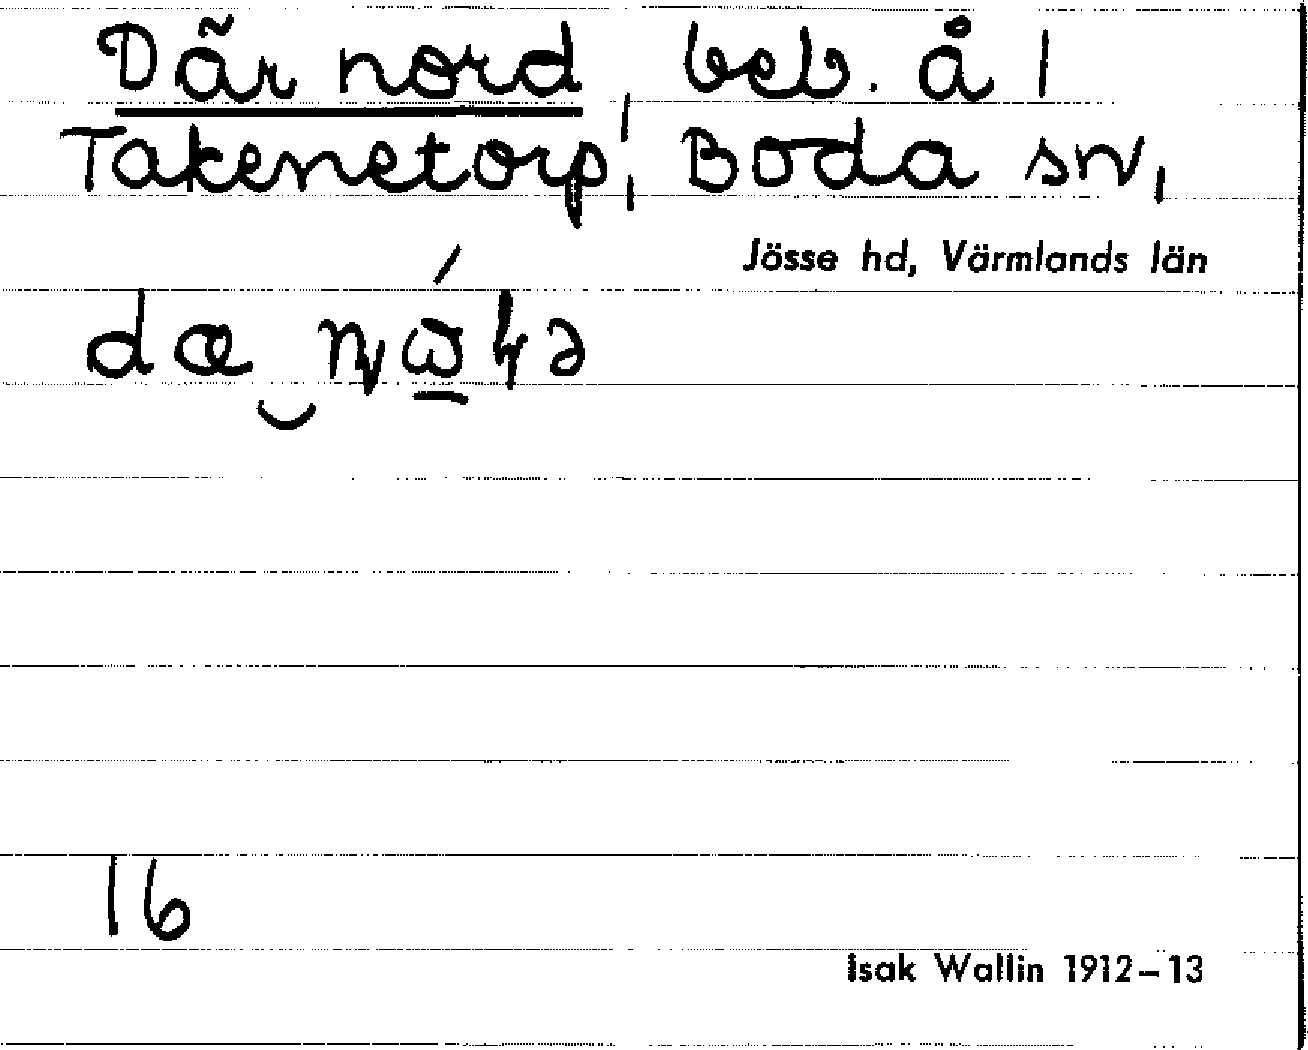 Där nord, beb. å 1
Takenetorp, Boda sn,
Jösse hd, Värmlands län
16
Isak Wallin 1912–13